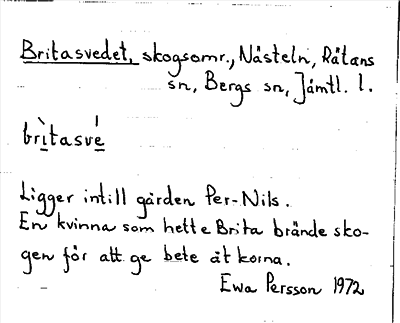 Britasvedet, skogsomr., Nästeln, Rätans
sn, Bergs sn, Jämtl. l.
brìtasvé
Ligger intill gården Per-Nils.
En kvinna som hette Brita brände sko-
gen för att ge bete åt korna.
Ewa Persson 1972